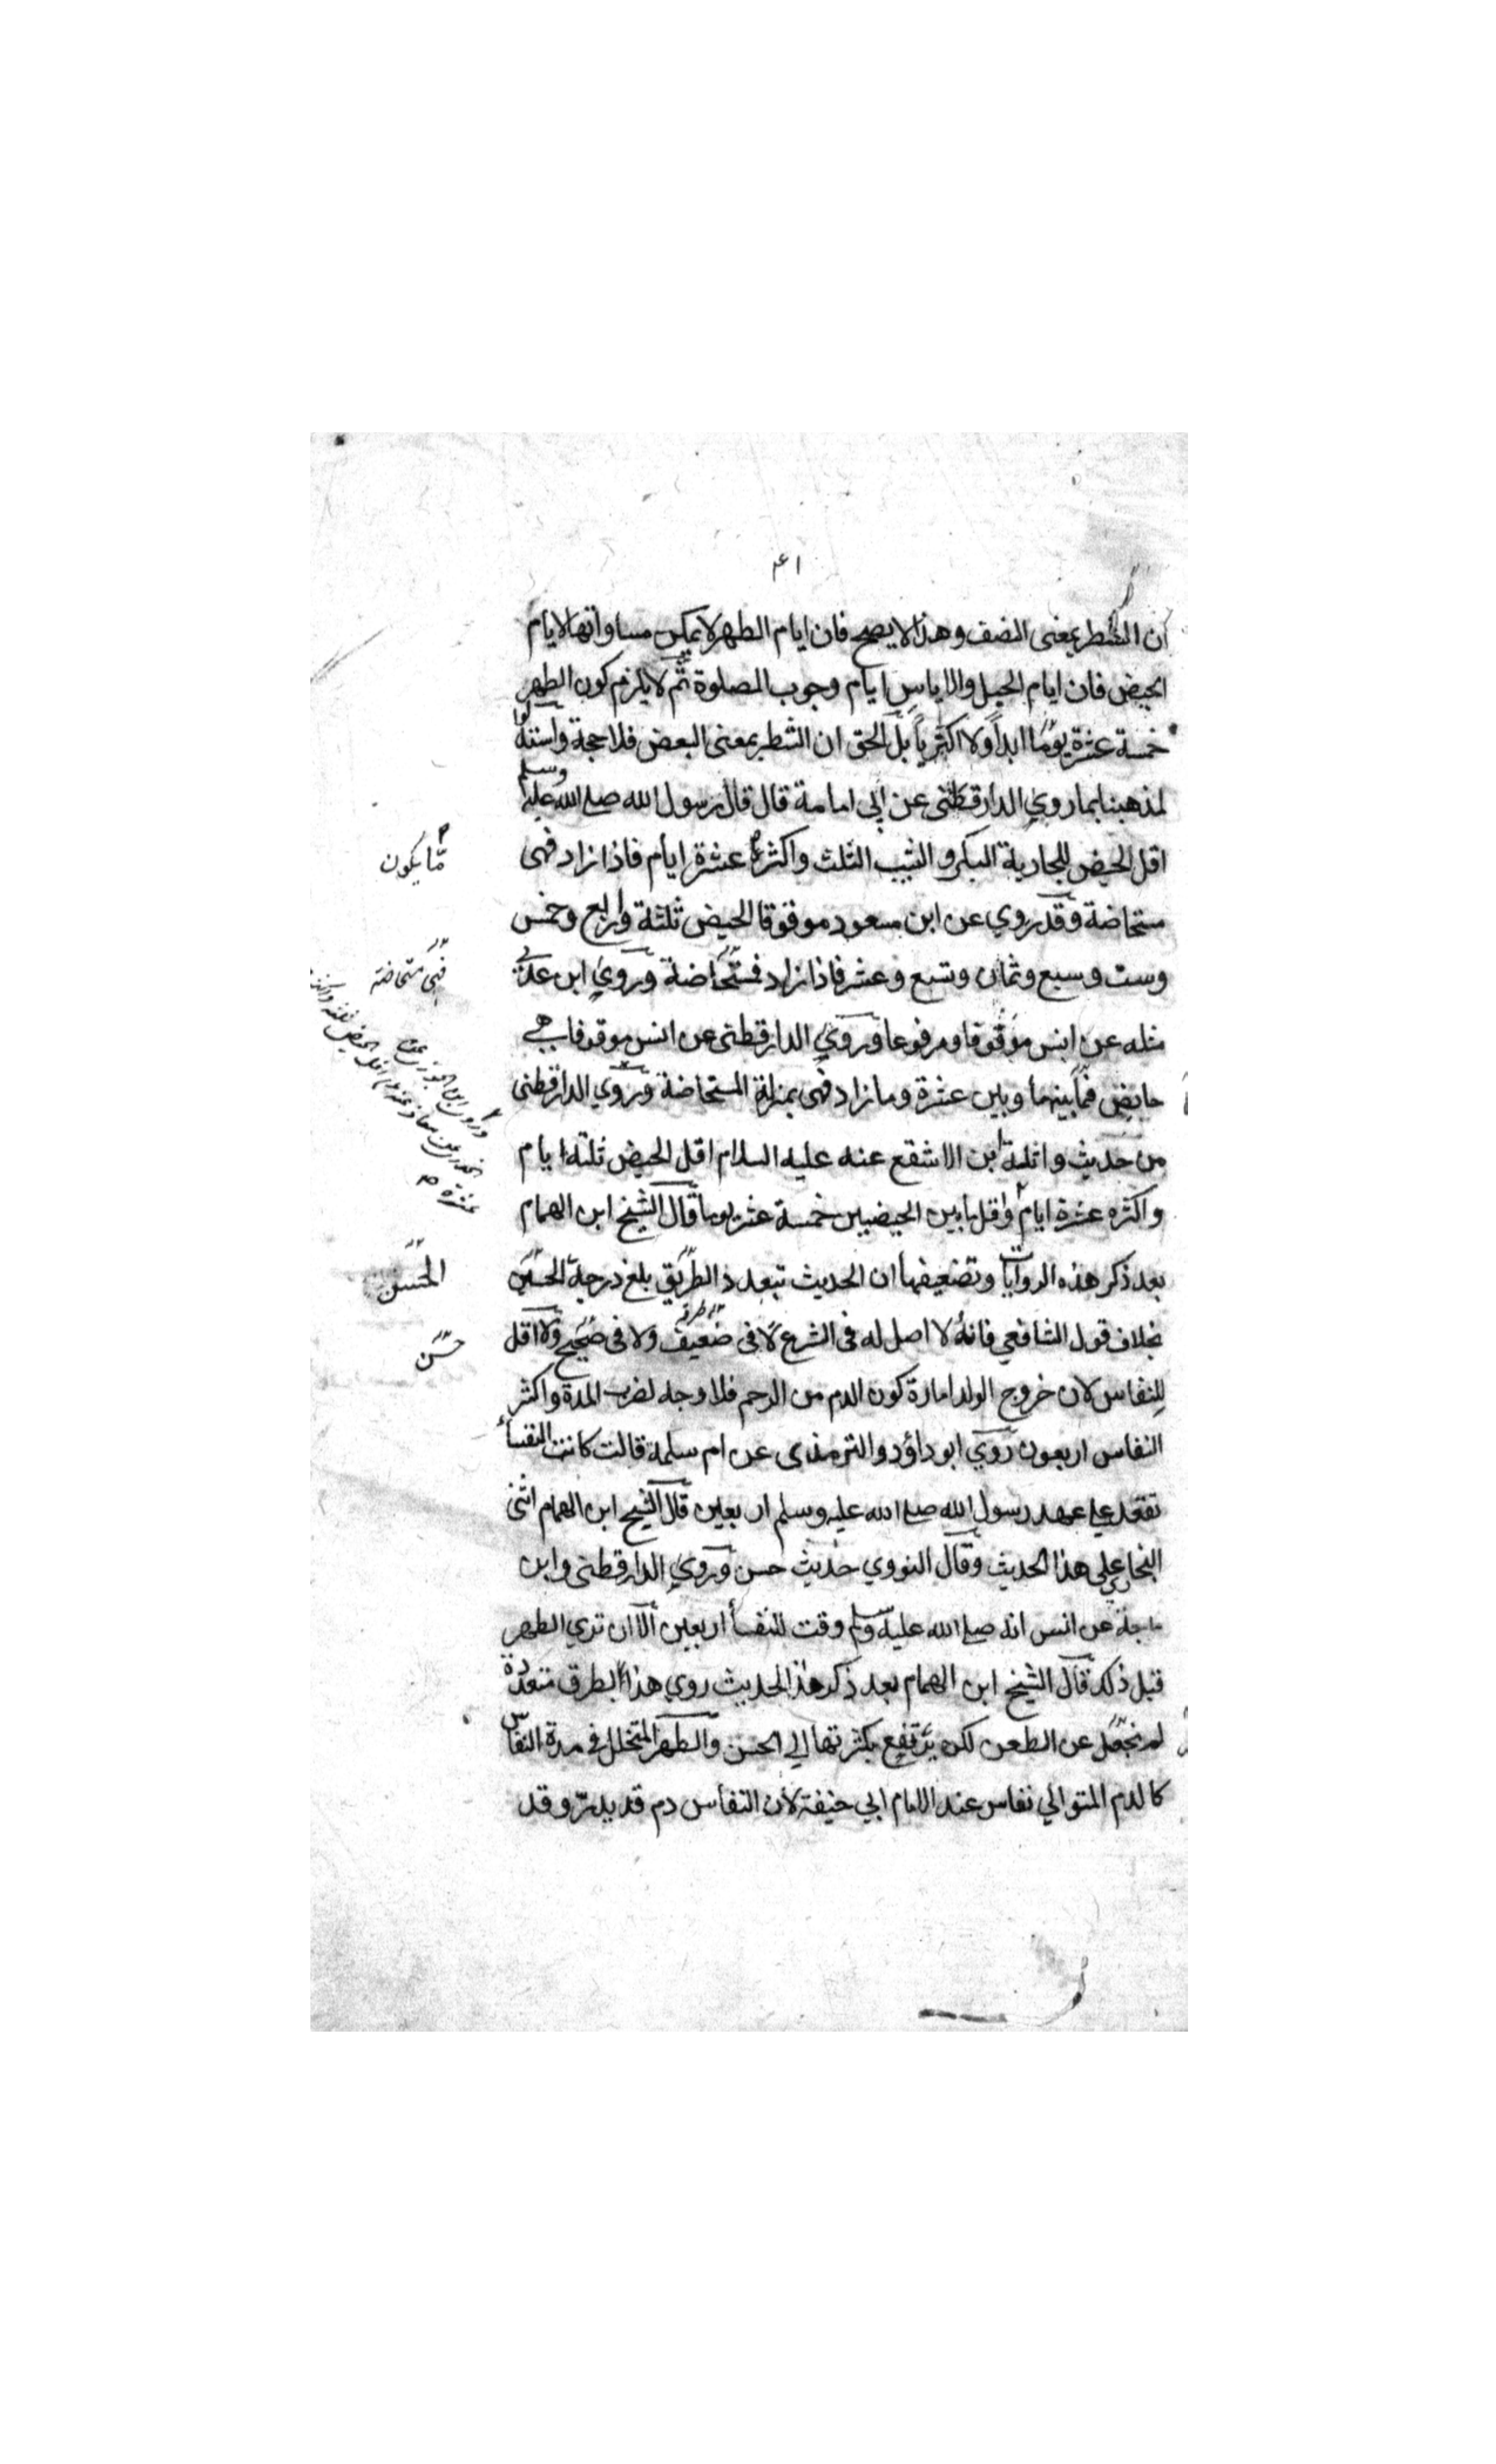 ۴۱
ان الشطر بمعنى النصف وهذا لا يصح فان ايام الطهر لا يمكن مساواتها لايام
الحيض فان ايام الحبل والاياس ايام وجوب الصلوة ثم لا يلزم كون الطهر
خمسة عشرة يوما ابدا ولا اكثريا بل الحق ان الشطر بمعنى البعض فلا حجة واستدلوا
لمذهبنا بما روي الدارقطنى عن ابي امامة قال قال رسول الله صلى الله عليه وسلم
اقل الحيض للجارية البكر والثيب الثلث واكثره عشرة ايام فاذا زاد فهى
مما يكون
مستحاضة وقد روي عن ابن مسعود موقوفا الحيض ثلثة واربع وخمس
وست وسبع وثمان وتسع وعشر فاذا زاد فمستحاضة وروي ابن عدي
فهى مستحاضة
مثله عن انس موقوفا ومرفوعا وروي الدارقطنى عن انس موقوفا هي
حايض فيما بينها وبين عشرة وما زاد فهى بمنزلة المستحاضة وروي الدارقطنى
من حديث واثلة ابن الاشقع عنه عليه السلام اقل الحيض ثلثة ايام
واكثره عشرة ايام واقل ما بين الحيضين خمسة عشر يوما قال الشيخ ابن الهمام
بعد ذكر هذه الروايات وتضعيفها ان الحديث تبعدد الطريق بلغ درجة الحسن
الحسن
بخلاف قول الشافعي فانه لا اصل له فى الشرع لا فى ضعيف ولا فى صحيح ولا اقل
حسن
للنفاس لان خروج الولد امارة كون الدم من الرحم فلا وجه لضرب المدة واكثر
النفاس اربعون روي ابو داؤد والترمذى عن ام سلمة قالت كانت النفسأ
تقعد علي عهد رسول الله صلى الله عليه وسلم اربعين قال الشيخ ابن الهمام اثنى
البخاري علي هذا الحديث وقال النووي حديث حسن وروي الدارقطنى وابن
ماجة عن انس انه صلى الله عليه وسلم وقت للنفسأ اربعين الا ان تري الطهر
قبل ذلك قال الشيخ ابن الهمام بعد ذكر هذا الحديث روي هذا بطرق متعددة
لم عن الطعن لكن يرتفع بكثرتها الي الحسن والطهر المتخلل في مدة النفاس
كالدم المتوالي نفاس عند الامام ابي حنيفة لان النفاس دم قد يدرّ وقد